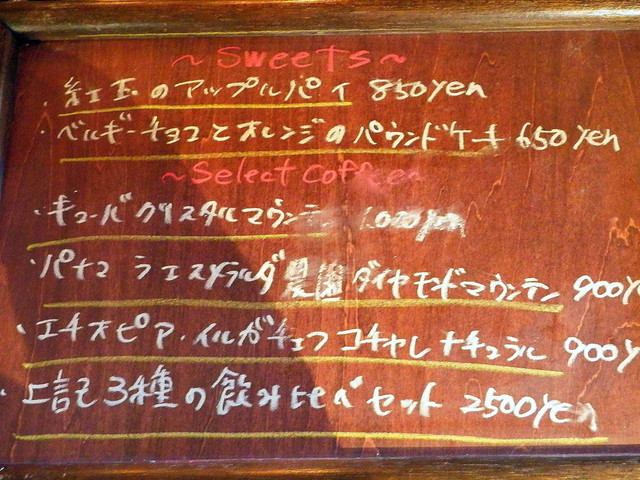 ~ Sweets ~
・紅玉のアップルパイ 850yen
・ベルギーチョコとオレンジのパウンドケーキ 650yen
~ Select Coffee
・キューバ クリスタルマウンテン 1000yen
・パナマ ラエスメラルダ農園 ダイヤモンドマウンテン 900y
・エチオピア・イルガチェフ コチャレ ナチュラル 900y
・上記3種の飲み比べセット 2500yen